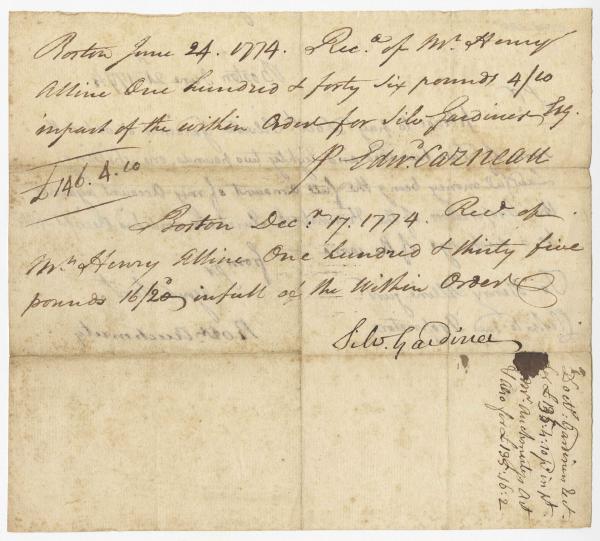 Boston June 24. 1774. Rec.d of Mr. Henry
Alline One hundred & forty six pounds 4/10
in part of the within Order for Silv. Gardiner Esq.
P Edw.d Cazneau
£146.4.10
Boston Dec.r 17. 1774. Rec.d of
Mr. Henry Alline One hundred & thirty five
pounds 16/2d in full of the Within Order
Silv. Gardiner
Doct.r Gardiners
Mr. Auchmutys
for £135:16:2